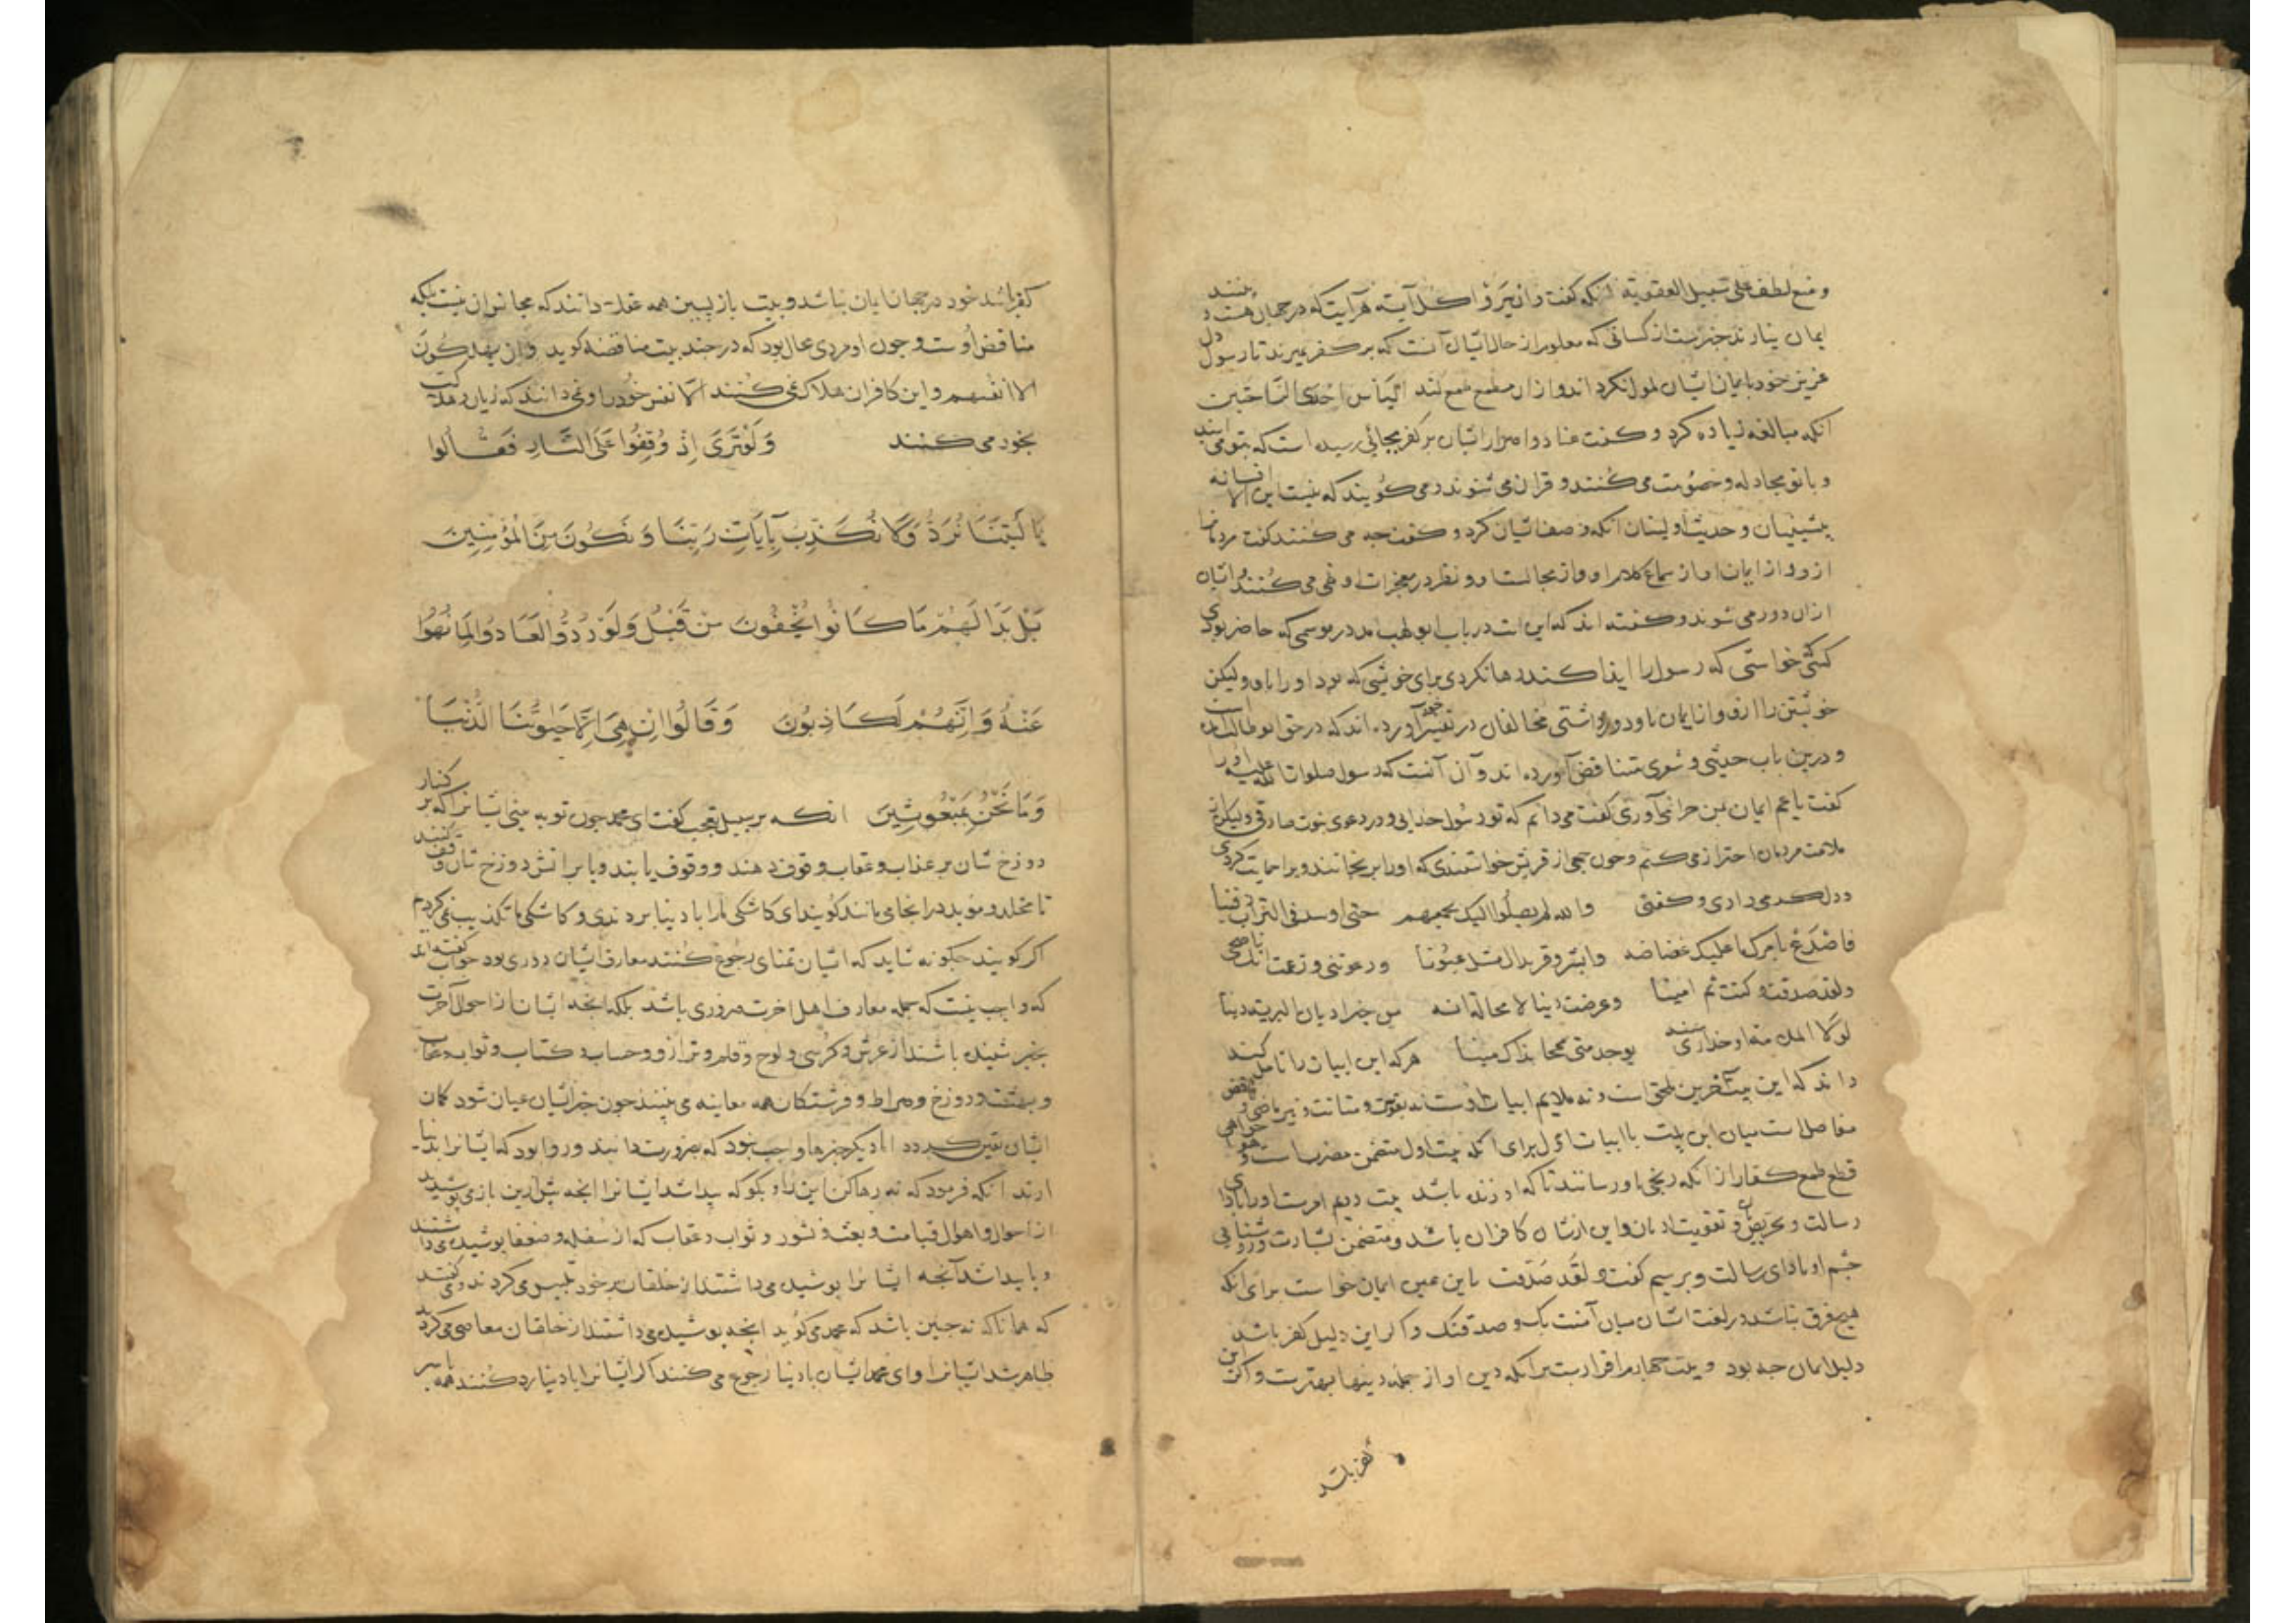 و منع لطف علی سبیل العقوبة انکه کفت و ان یروا کل آیة هر آیت که در جهان هست و بینند
ایمان نیارند خبرست از کسانی که معلوم از حال ایشان آنست که بر کفر میرند تا رسول دل
عزیز خود بایمان ایشان ملول نکرداند و از ان مطمع طمع بکند الیأس احدی الراحتین
انکه مبالغه زیاده کرد و کفت عناد و اصرار ایشان بر کفر بجائی رسیده است که بتو می ایند
و با تو مجادله و خصومت می کنند و قران می شنوند و می کویند که نیست این الا افسانه
پیشینیان و حدیث اولینان انکه وصف ایشان کرد و کفت جه می کنند کفت مردمانرا
ازو و از ایمان او از سماع کلام او و از مجالست او و نظر در معجزات او نهی می کنند و ایشان
از ان دور می شوند و کفته اند که این ایت در باب ابو لهب امد در موسمی که حاضر بودی
کسی خواستی که رسول را ایذا کند رها نکردی برای خویشی که بود او را باو ولیکن
خویشتن را ازو و از ایمان باو دور داشتی مخالفان در تفسیر خود آورده اند که در حق ابو طالب است
و درین باب حدیثی و شعری متناقض آورده اند و آن آنست که رسول صلوات الله علیه او را
کفت یا عم ایمان بمن جرا نمی آوری کفت می دانم که تو رسول خدایی و در دعوی نبوت صادقی ولیکن از
ملامت مردمان احتراز می کنم و جون جمعی از قریش خواستندی که او را برنجانند ویرا حمایت کردی
و دلکرمی دادی و کفتی والله لم یصلوا الیک بجمعهم حتی اوسد فی التراب دفینا
فاصدع بامرک ما علیک غضاضه وابشر وقر بذاک منک عیونا ودعوتنی وزعمت انک ناصحی
ولقد صدقت وکنت ثم امینا وعرضت دینا لا محالة انه من خیر ادیان البریة دینا
لولا الملامة او حذاری سبة لوجدتنی سمحا بذاک مبینا هر که این ابیات را تامل کند
داند که این بیت آخرین ملحق است و نه ملایم ابیات اوست نه بقوت و متانت و نیز
مفاصل است میان این بیت با ابیات اول برای آنکه بیت اول متضمن
قطع طمع کفار از انکه رنجی باو رسانند تا که او زنده باشد بیت دوم امرست او را بادای
رسالت و تحریض و تقویت او بان و این از شان کافران باشد و متضمن بشارت و روشنایی
جشم او بادای رسالت و بر سیم کفت و لقد صدقت باین عین ایمان خواست برای آنکه
هیچ فرق نباشد در لغت ایشان میان آمنت بک و صدقتک و اکر این دلیل کفر باشد
دلیل ایمان جه بود و بیت جهارم اقرارست برانکه دین او از جمله دینها بهترست و اکر این
کفر باشد
کفر باشد خود در جهان ایمان نباشد و بیت بازپسین همه عقلا دانند که مجانس ان نیست بلکه
مناقض اوست و جون او مردی عاقل بود که در جند بیت مناقضه کوید و ان یهلکون
الا انفسهم و این کافران هلاک نمی کنند الا نفس خود را و نمی دانند که زیان و هلاکت
بخود می کنند وَلَوْ تَرَى إِذْ وُقِفُوا عَلَى النَّارِ فَقَالُوا
يَا لَيْتَنَا نُرَدُّ وَلَا نُكَذِّبَ بِآيَاتِ رَبِّنَا وَنَكُونَ مِنَ الْمُؤْمِنِينَ
بَلْ بَدَا لَهُمْ مَا كَانُوا يُخْفُونَ مِنْ قَبْلُ وَلَوْ رُدُّوا لَعَادُوا لِمَا نُهُوا
عَنْهُ وَإِنَّهُمْ لَكَاذِبُونَ وَقَالُوا إِنْ هِيَ إِلَّا حَيٰوتُنَا الدُّنْيَا
وَمَا نَحْنُ بِمَبْعُوثِينَ انکه بر سبیل تعجب کفت ای محمد جون تو به بینی ایشانرا که بر کنار
دوزخ شان بر عذاب و عقاب وقوف دهند و وقوف یابند و یا بر اتش دوزخ شان وقف کنند
تا مخلد و موبد در انجا می مانند کویند ای کاشکی مارا با دنیا بردندی و کاشکی ما تکذیب نمی کردیم
اکر کویند جکونه شاید که ایشان تمنای رجوع کنند و معارف ایشان ضروری بود جواب کفته اند
که واجب نیست که جمله معارف اهل اخرت ضروری باشد بلکه انجه ایشان از احوال آخرت
بخبر شنیده باشند از عرش و کرسی و لوح و قلم و ترازو و حساب و کتاب و ثواب و عقاب
و بهشت و دوزخ و صراط و فرشتکان همه معاینه می بینند جون خبر ایشان عیان شود کمان
ایشان یقین کردد اما دیکر جیزها واجب نبود که بضرورت دانند و روا بود که ایشانرا با دنیا
ارند انکه فرمود که نه رها کن این را و بکو که پیدا شد ایشانرا انجه پیش ازین باز می پوشیدند
از احوال و اهوال قیامت و بعث و نشور و ثواب و عقاب که از سفله و ضعفا پوشیده می داشتند
و یا پیدا شد آنجه ایشانرا پوشیده می داشتند از خلقان بر خود تلبیس می کردند و می کفتند
که همانا که نه جنین باشد که محمد می کوید انجه پوشیده می داشتند از خلقان معاصی می کردند
ظاهر شد ایشانرا و ای محمد ایشان با دنیا رجوع می کنند اکر ایشانرا با دنیا رد کنند همه با سر